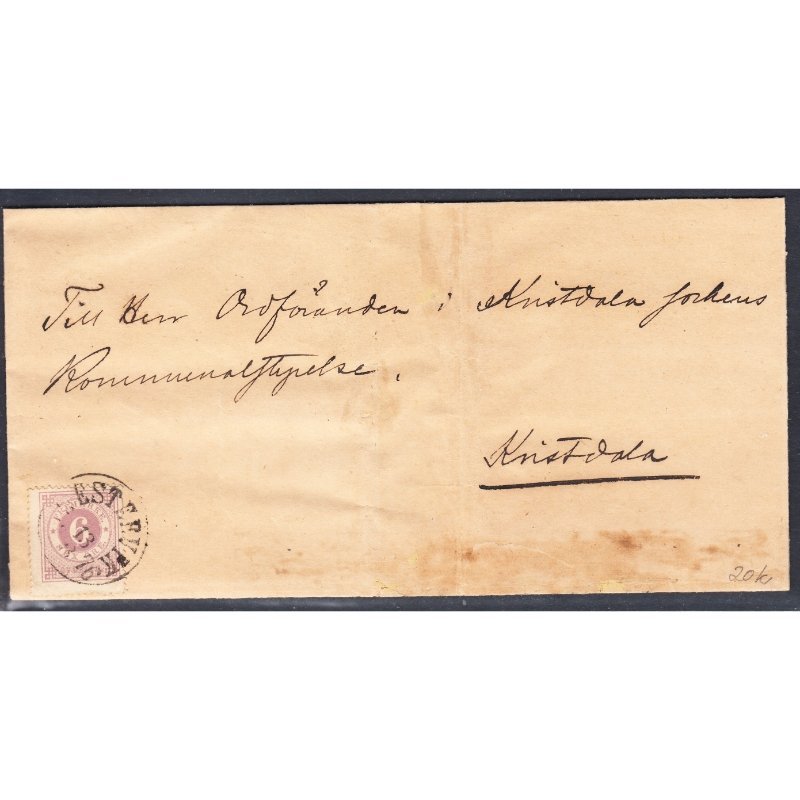 Till Herr Ordföranden i Kristdala sockens
Kommunalstyrelse.
Kristdala
ESTERVIK
13
6
20k